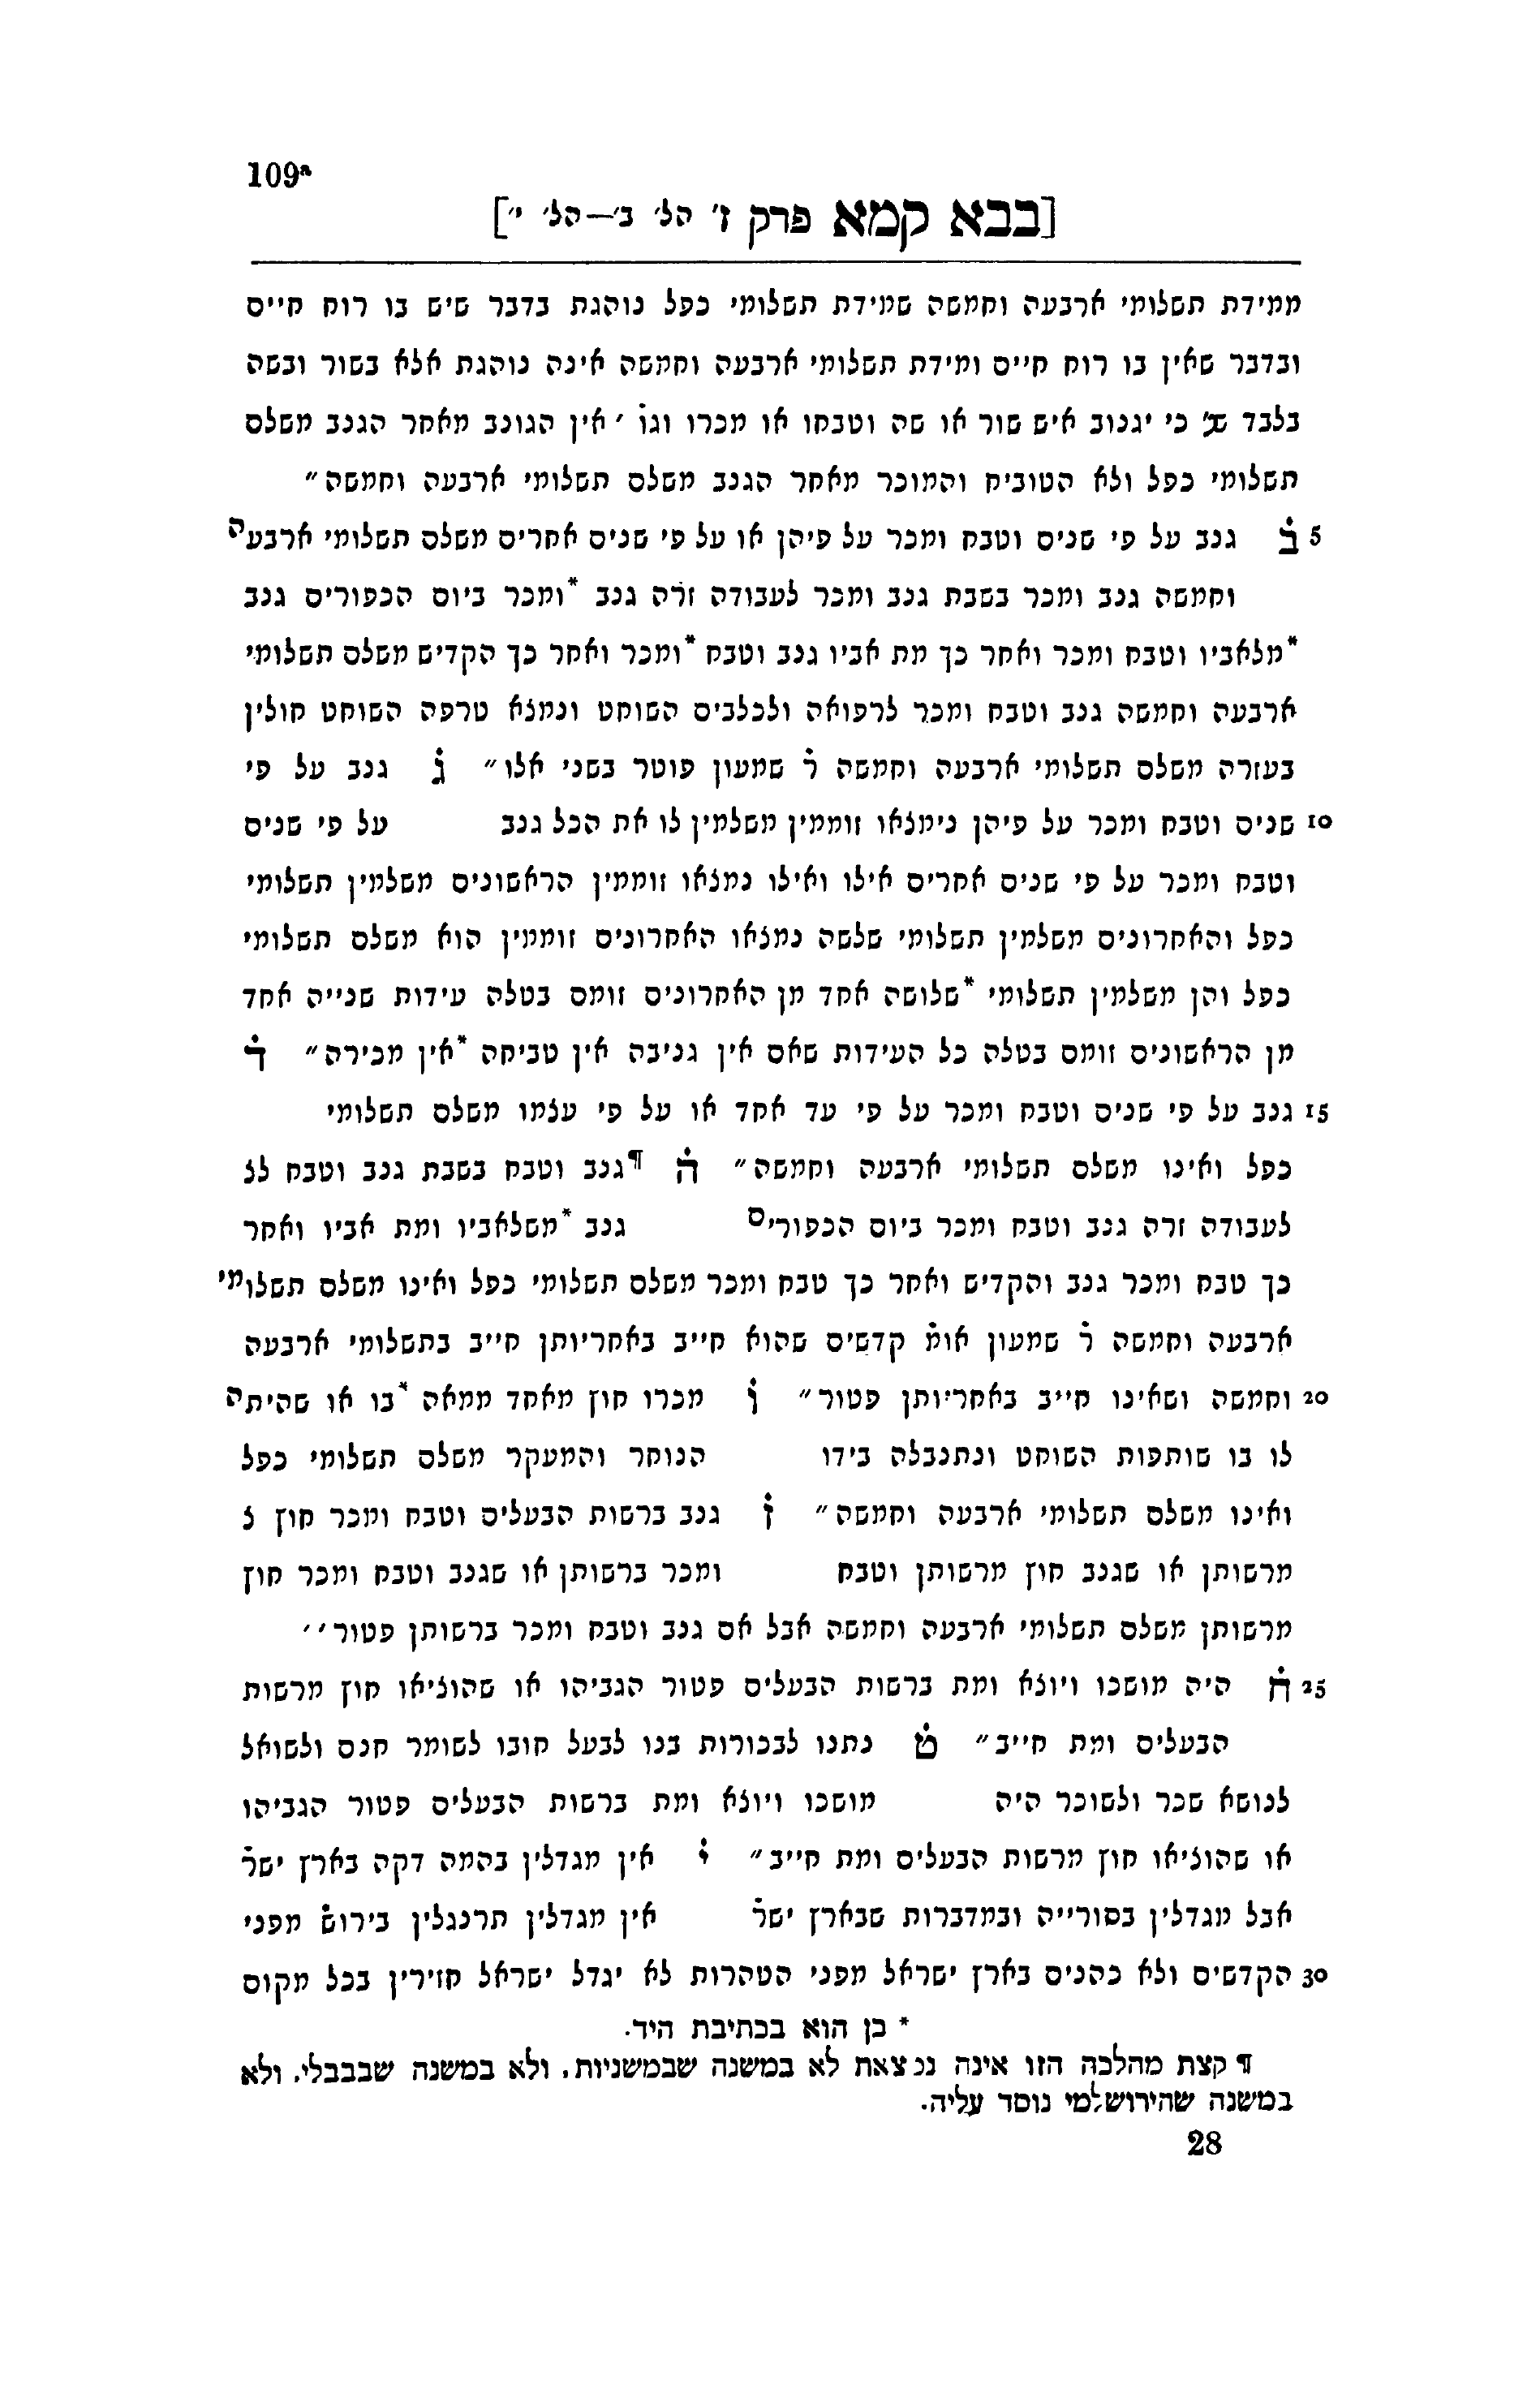 109ª
[בבא קמא פרק ז' הל' ב'—הל' י']
ממידת תשלומי ארבעה וחמשה שמידת תשלומי כפל נוהגת בדבר שיש בו רוח חיים
ובדבר שאין בו רוח חיים ומידת תשלומי ארבעה וחמשה אינה נוהגת אלא בשור ובשה
בלבד שנ' כי יגנוב איש שור או שה וטבחו או מכרו וגו' אין הגונב מאחר הגנב משלם
תשלומי כפל ולא הטוביח והמוכר מאחר הגנב משלם תשלומי ארבעה וחמשה״
5 ב גנב על פי שנים וטבח ומכר על פיהן או על פי שנים אחרים משלם תשלומי ארבעה
וחמשה גנב ומכר בשבת גנב ומכר לעבודה זרה גנב *ומכר ביום הכפורים גנב
*מלאביו וטבח ומכר ואחר כך מת אביו גנב וטבח *ומכר ואחר כך הקדיש משלם תשלומי
ארבעה וחמשה גנב וטבח ומכר לרפואה ולכלבים השוחט ונמצא טרפה השוחט חולין
בעזרה משלם תשלומי ארבעה וחמשה ר' שמעון פוטר בשני אלו״ ג גנב על פי
10 שנים וטבח ומכר על פיהן נימצאו זוממין משלמין לו את הכל גנב על פי שנים
וטבח ומכר על פי שנים אחרים אילו ואילו נמצאו זוממין הראשונים משלמין תשלומי
כפל והאחרונים משלמין תשלומי שלשה נמצאו האחרונים זוממין הוא משלם תשלומי
כפל והן משלמין תשלומי *שלושה אחד מן האחרונים זומם בטלה עידות שנייה אחד
מן הראשונים זומם בטלה כל העידות שאם אין גניבה אין טביחה *אין מכירה״ ד
15 גנב על פי שנים וטבח ומכר על פי עד אחד או על פי עצמו משלם תשלומי
כפל ואינו משלם תשלומי ארבעה וחמשה״ ה ¶גנב וטבח בשבת גנב וטבח לצ
לעבודה זרה גנב וטבח ומכר ביום הכפורים גנב *משלאביו ומת אביו ואחר
כך טבח ומכר גנב והקדיש ואחר כך טבח ומכר משלם תשלומי כפל ואינו משלם תשלומי
ארבעה וחמשה ר' שמעון אומ' קדשים שהוא חייב באחריותן חייב בתשלומי ארבעה
20 וחמשה ושאינו חייב באחריותן פטור״ ו מכרו חוץ מאחד ממאה *בו או שהיתה
לו בו שותפות השוחט ונתנבלה בידו הנוחר והמעקר משלם תשלומי כפל
ואינו משלם תשלומי ארבעה וחמשה״ ז גנב ברשות הבעלים וטבח ומכר חוץ צ
מרשותן או שגנב חוץ מרשותן וטבח ומכר ברשותן או שגנב וטבח ומכר חוץ
מרשותן משלם תשלומי ארבעה וחמשה אבל אם גנב וטבח ומכר ברשותן פטור״
25 ח היה מושכו ויוצא ומת ברשות הבעלים פטור הגביהו או שהוציאו חוץ מרשות
הבעלים ומת חייב״ ט נתנו לבכורות בנו לבעל חובו לשומר חנם ולשואל
לנושא שכר ולשוכר היה מושכו ויוצא ומת ברשות הבעלים פטור הגביהו
או שהוציאו חוץ מרשות הבעלים ומת חייב״ י אין מגדלין בהמה דקה בארץ ישר'
אבל מגדלין בסורייה ובמדברות שבארץ ישר' אין מגדלין תרנגלין בירוש' מפני
30 הקדשים ולא כהנים בארץ ישראל מפני הטהרות לא יגדל ישראל חזירין בכל מקום
* כן הוא בכתיבת היד.
¶ קצת מהלכה הזו אינה נמצאת לא במשנה שבמשניות, ולא במשנה שבבבלי, ולא
במשנה שהירושלמי נוסד עליה.
28